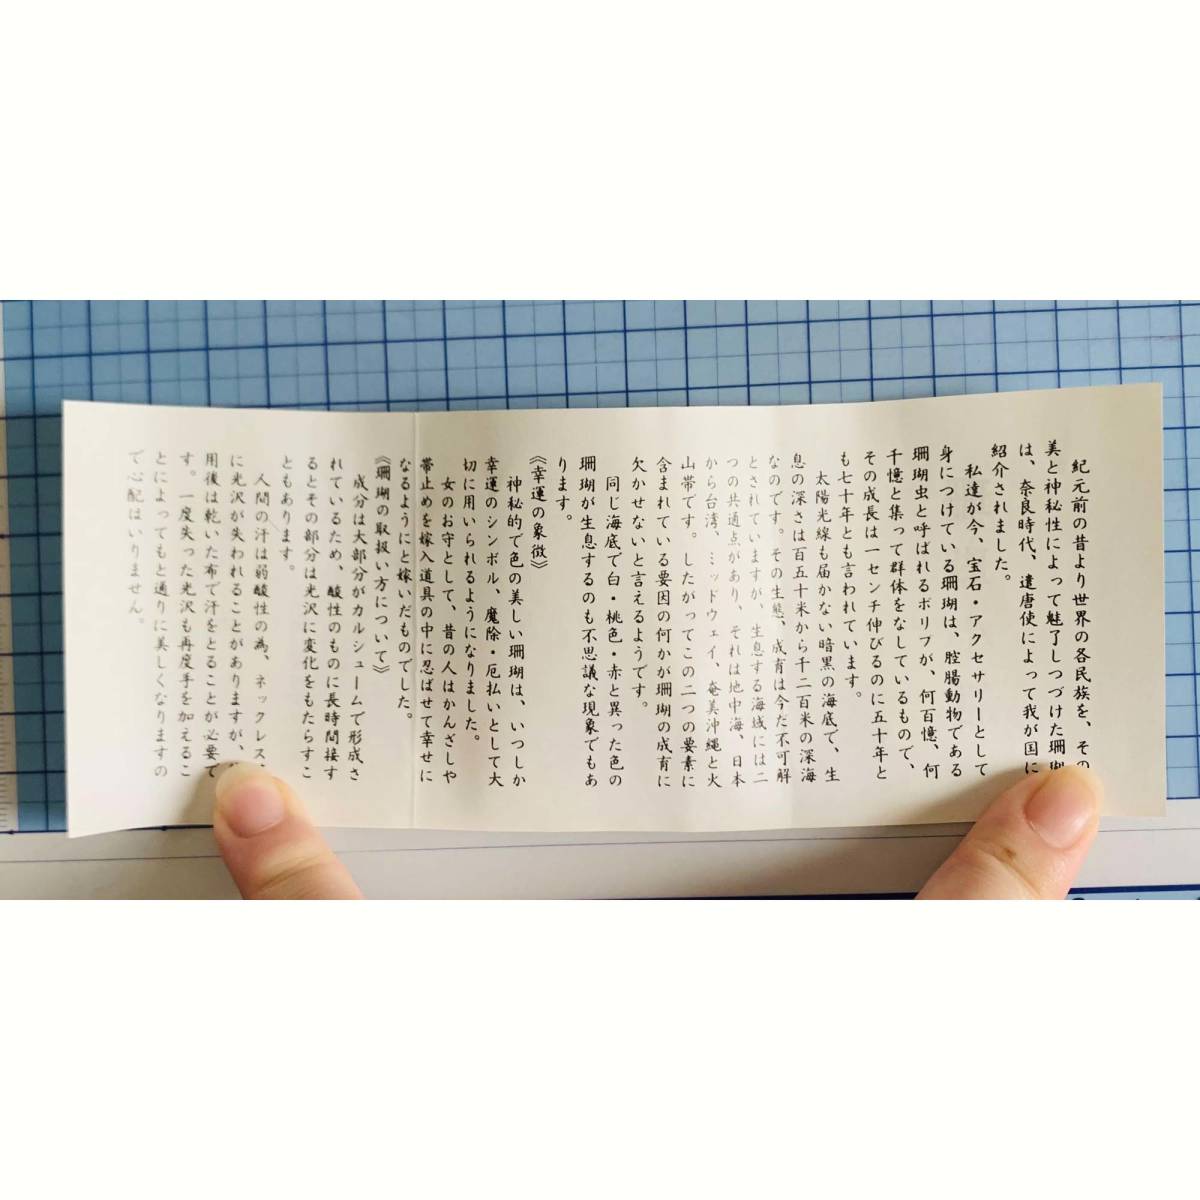 紀元前の昔より世界の各民族を、その
美と神秘性によって魅了しつづけた珊瑚
は、奈良時代、遣唐使によって我が国に
紹介されました。
私達が今、宝石・アクセサリーとして
身につけている珊瑚は、腔腸動物である
珊瑚虫と呼ばれるポリプが、何百憶、何
千憶と集って群体をなしているもので、
その成長は一センチ伸びるのに五十年と
も七十年とも言われています。
太陽光線も届かない暗黒の海底で、生
息の深さは百五十米から千二百米の深海
なのです。その生態、成育は今だ不可解
とされていますが、生息する海域には二
つの共通点があり、それは地中海、日本
から台湾、ミッドウェイ、奄美沖縄と火
山帯です。したがってこの二つの要素に
含まれている要因の何かが珊瑚の成育に
欠かせないと言えるようです。
同じ海底で白・桃色・赤と異った色の
珊瑚が生息するのも不思議な現象でもあ
ります。
《幸運の象徴》
神秘的で色の美しい珊瑚は、いつしか
幸運のシンボル、魔除・厄払いとして大
切に用いられるようになりました。
女のお守として、昔の人はかんざしや
帯止めを嫁入道具の中に忍ばせて幸せに
なるようにと嫁いだものでした。
《珊瑚の取扱い方について》
成分は大部分がカルシュームで形成さ
れているため、酸性のものに長時間接す
るとその部分は光沢に変化をもたらすこ
ともあります。
人間の汗は弱酸性の為、ネックレス、
に光沢が失われることがありますが、
用後は乾いた布で汗をとることが必要で
す。一度失った光沢も再度手を加えるこ
とによってもと通りに美しくなりますの
で心配はいりません。